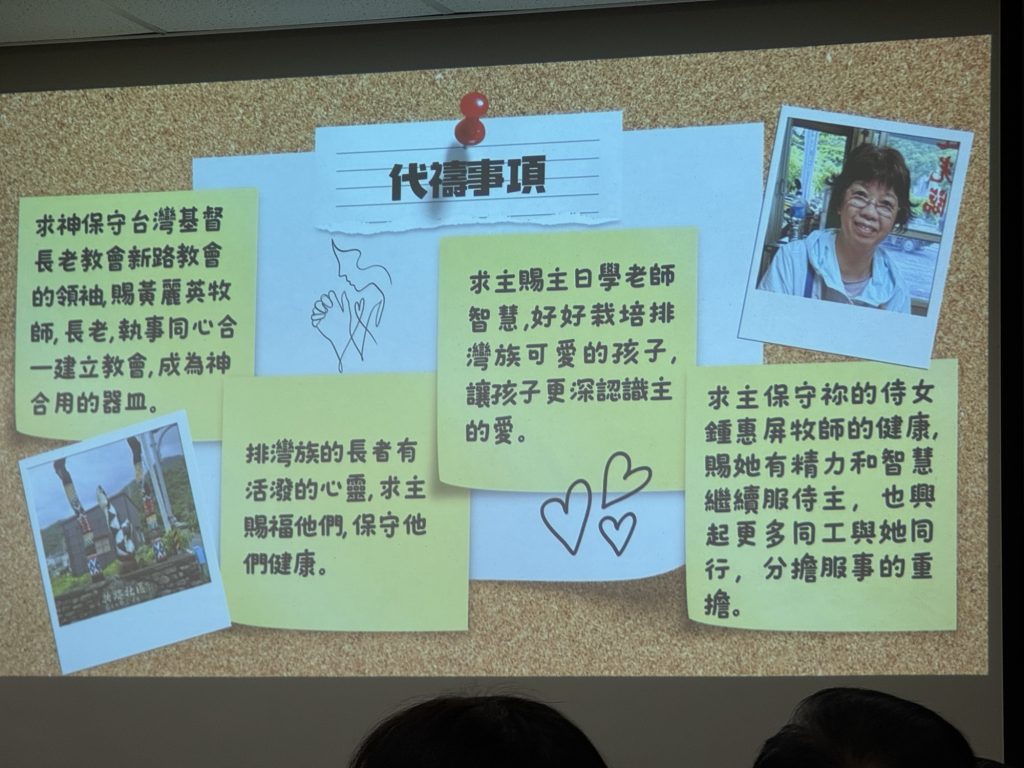 代禱事項
求神保守台灣基督
長老教會新路教會
的領袖,賜黃麗英牧
師,長老,執事同心合
一建立教會,成為神
合用的器皿。
排灣族的長者有
活潑的心靈,求主
賜福他們,保守他
們健康。
求主賜主日學老師
智慧,好好栽培排
灣族可愛的孩子,
讓孩子更深認識主
的愛。
求主保守祢的侍女
鍾惠屏牧師的健康,
賜她有精力和智慧
繼續服侍主，也興
起更多同工與她同
行，分擔服事的重
擔。